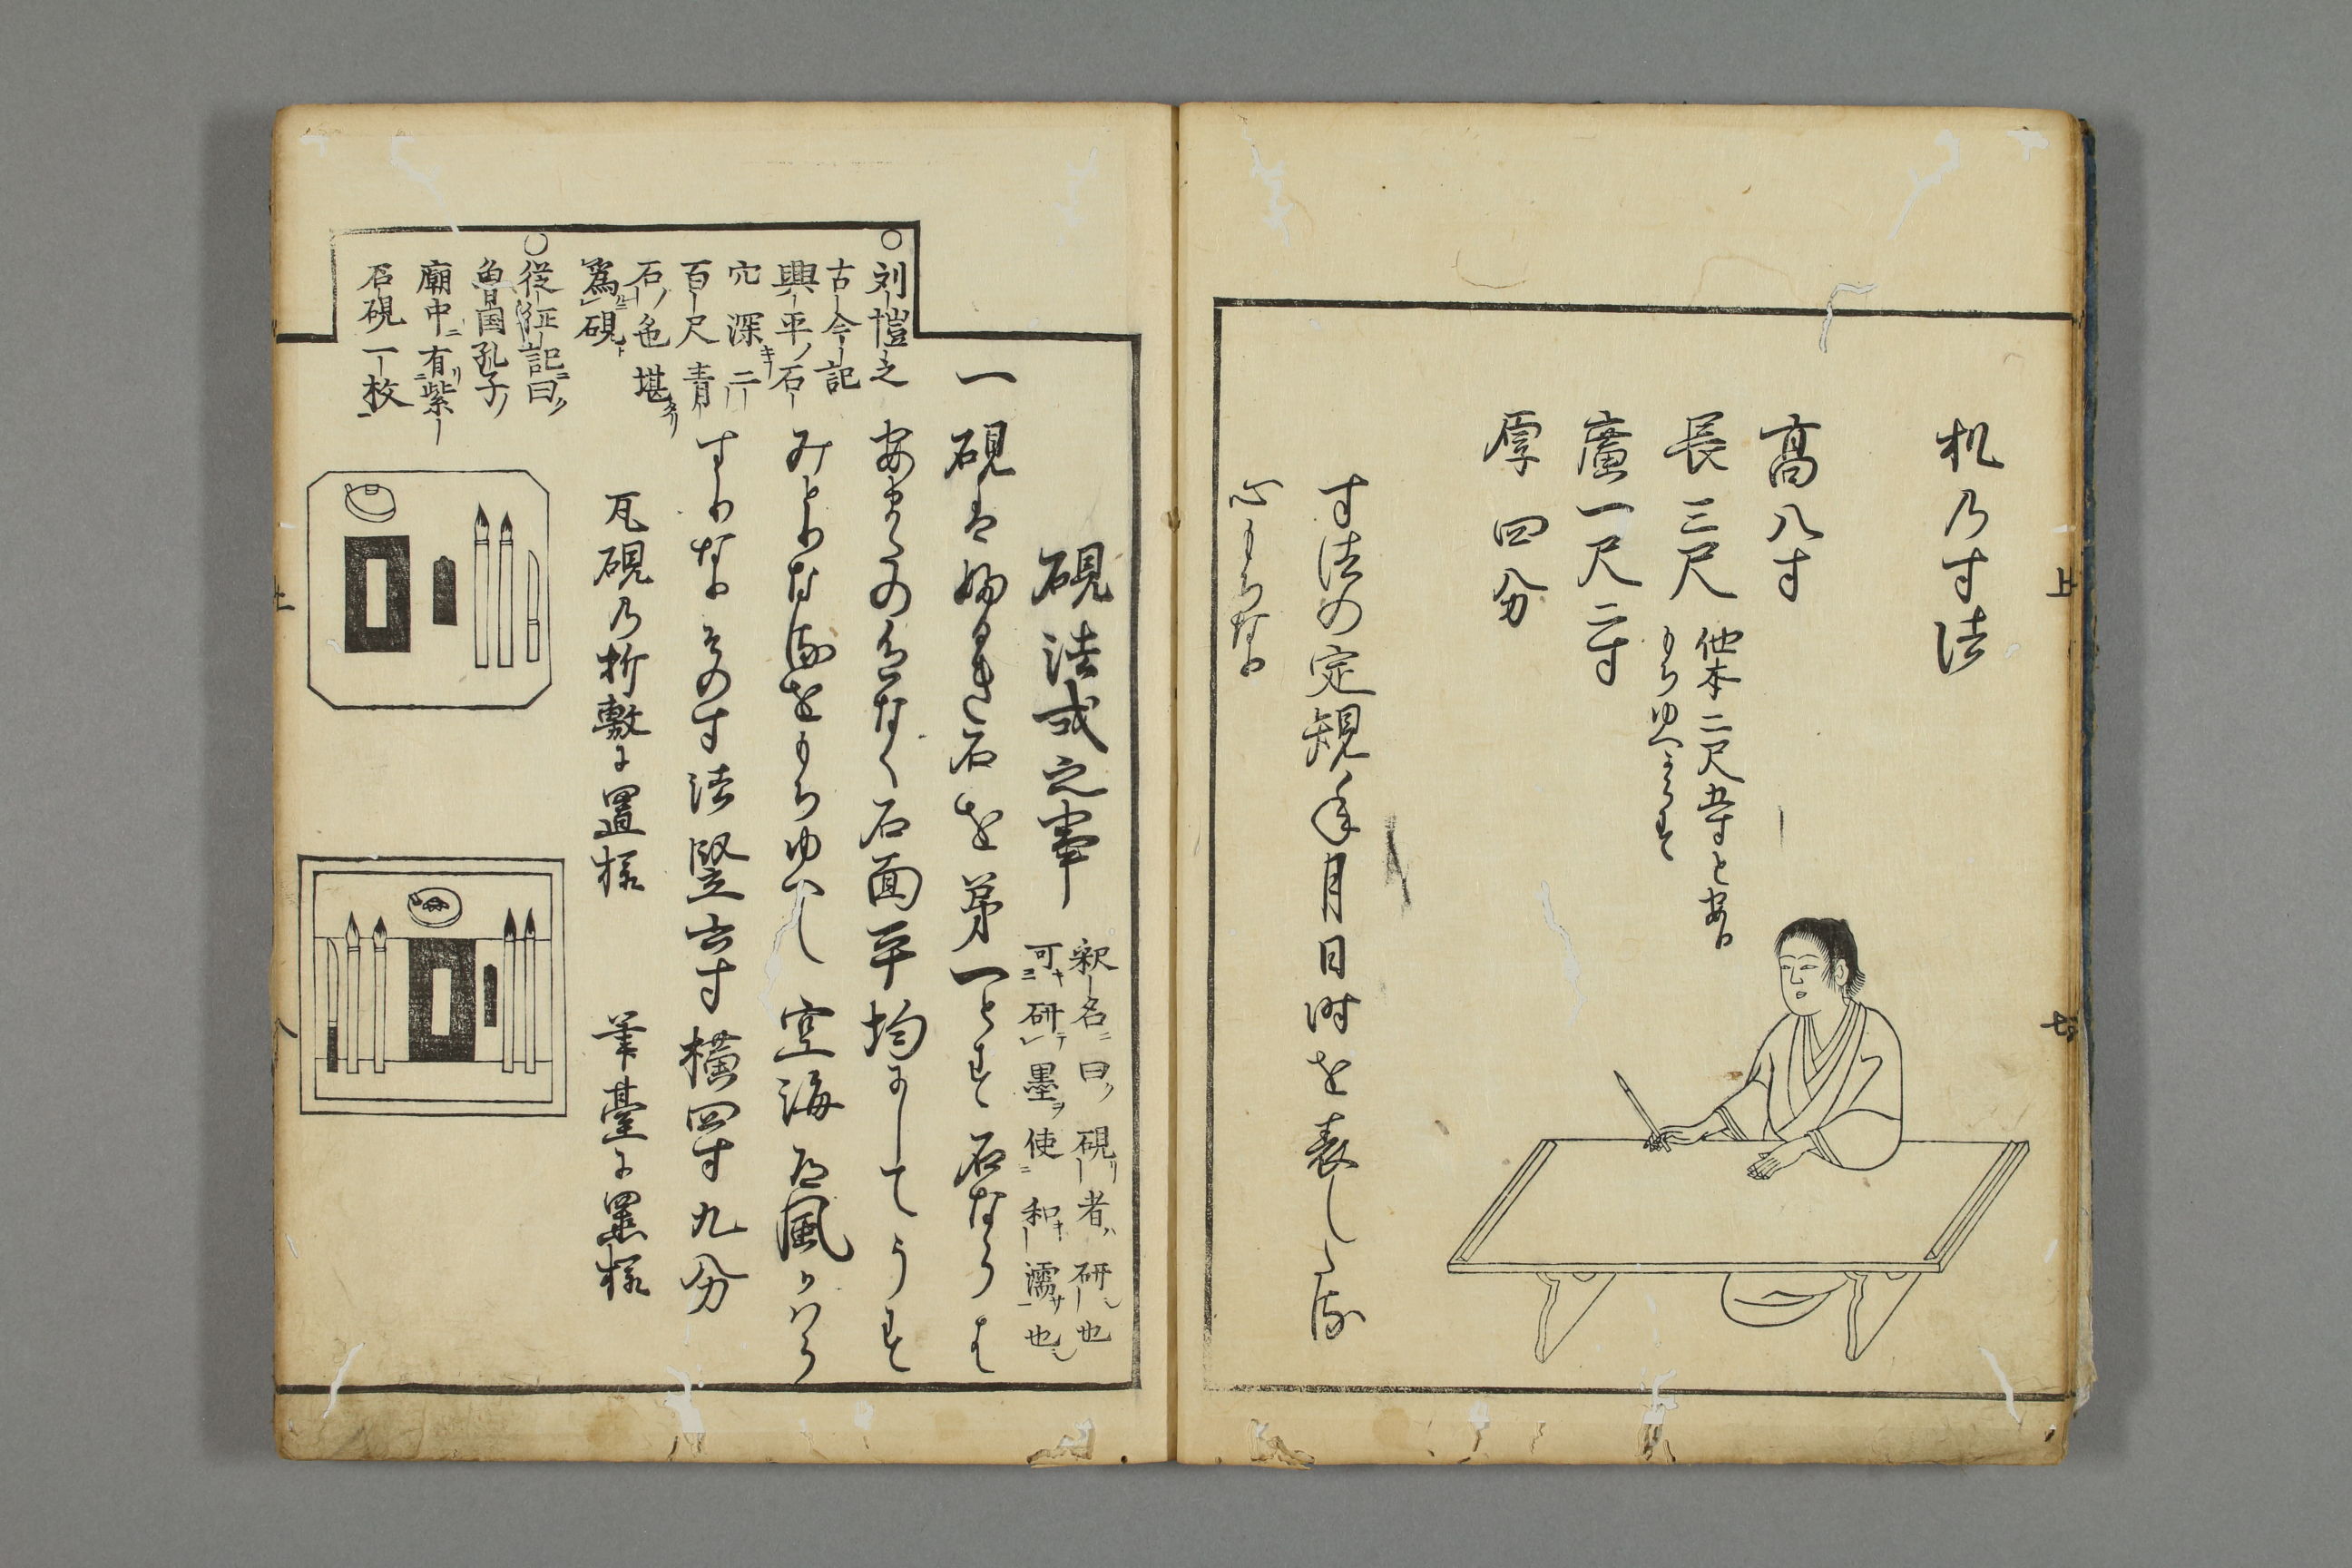 机乃寸法
高八寸
長三尺
他本二尺五寸とあり
もちゆへからす
廣一尺二寸
厚四分
寸法の定規年月日時を表したる
心もちなり
上
七
硯法式之事
釈名ニ曰ク硯者ハ研也
可キ研テ墨ヲ使ニ和濡也
一硯はふるき石を第一とす石ならは
あまたの色なく石面平均にしてうす
みとりなるをもちゆへし空海道風かハら
すりなりその寸法竪六寸横四寸九分
瓦硯乃折敷に置様
筆臺に置様
○刘愷之
古今記
興平ノ石
穴深キ二
百尺青
石ノ色堪タリ
為ニ硯ト
○従征記ニ曰ク
魯国孔子ノ
廟中ニ有リ紫
石硯一枚
上
八